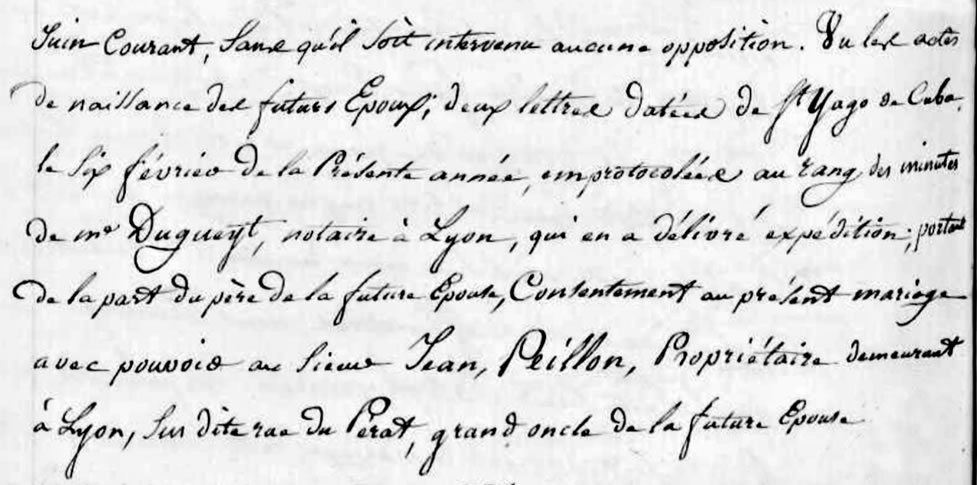 Juin Courant, Sans qu'il soit intervenu aucune opposition. Vu les actes
de naissance des futurs Epoux; deux lettres datées de St Yago de Cuba,
le six février de la Présente année, emprotocolées au rang des minutes
de me Dugueyt, notaire à Lyon, qui en a délivré expédition; portant
de la part du père de la future Epouse, Consentement au présent mariage
avec pouvoir au Sieur Jean, Peillon, Propriétaire demeurant
à Lyon, Sus dite rue du Pérat, grand oncle de la future Epouse